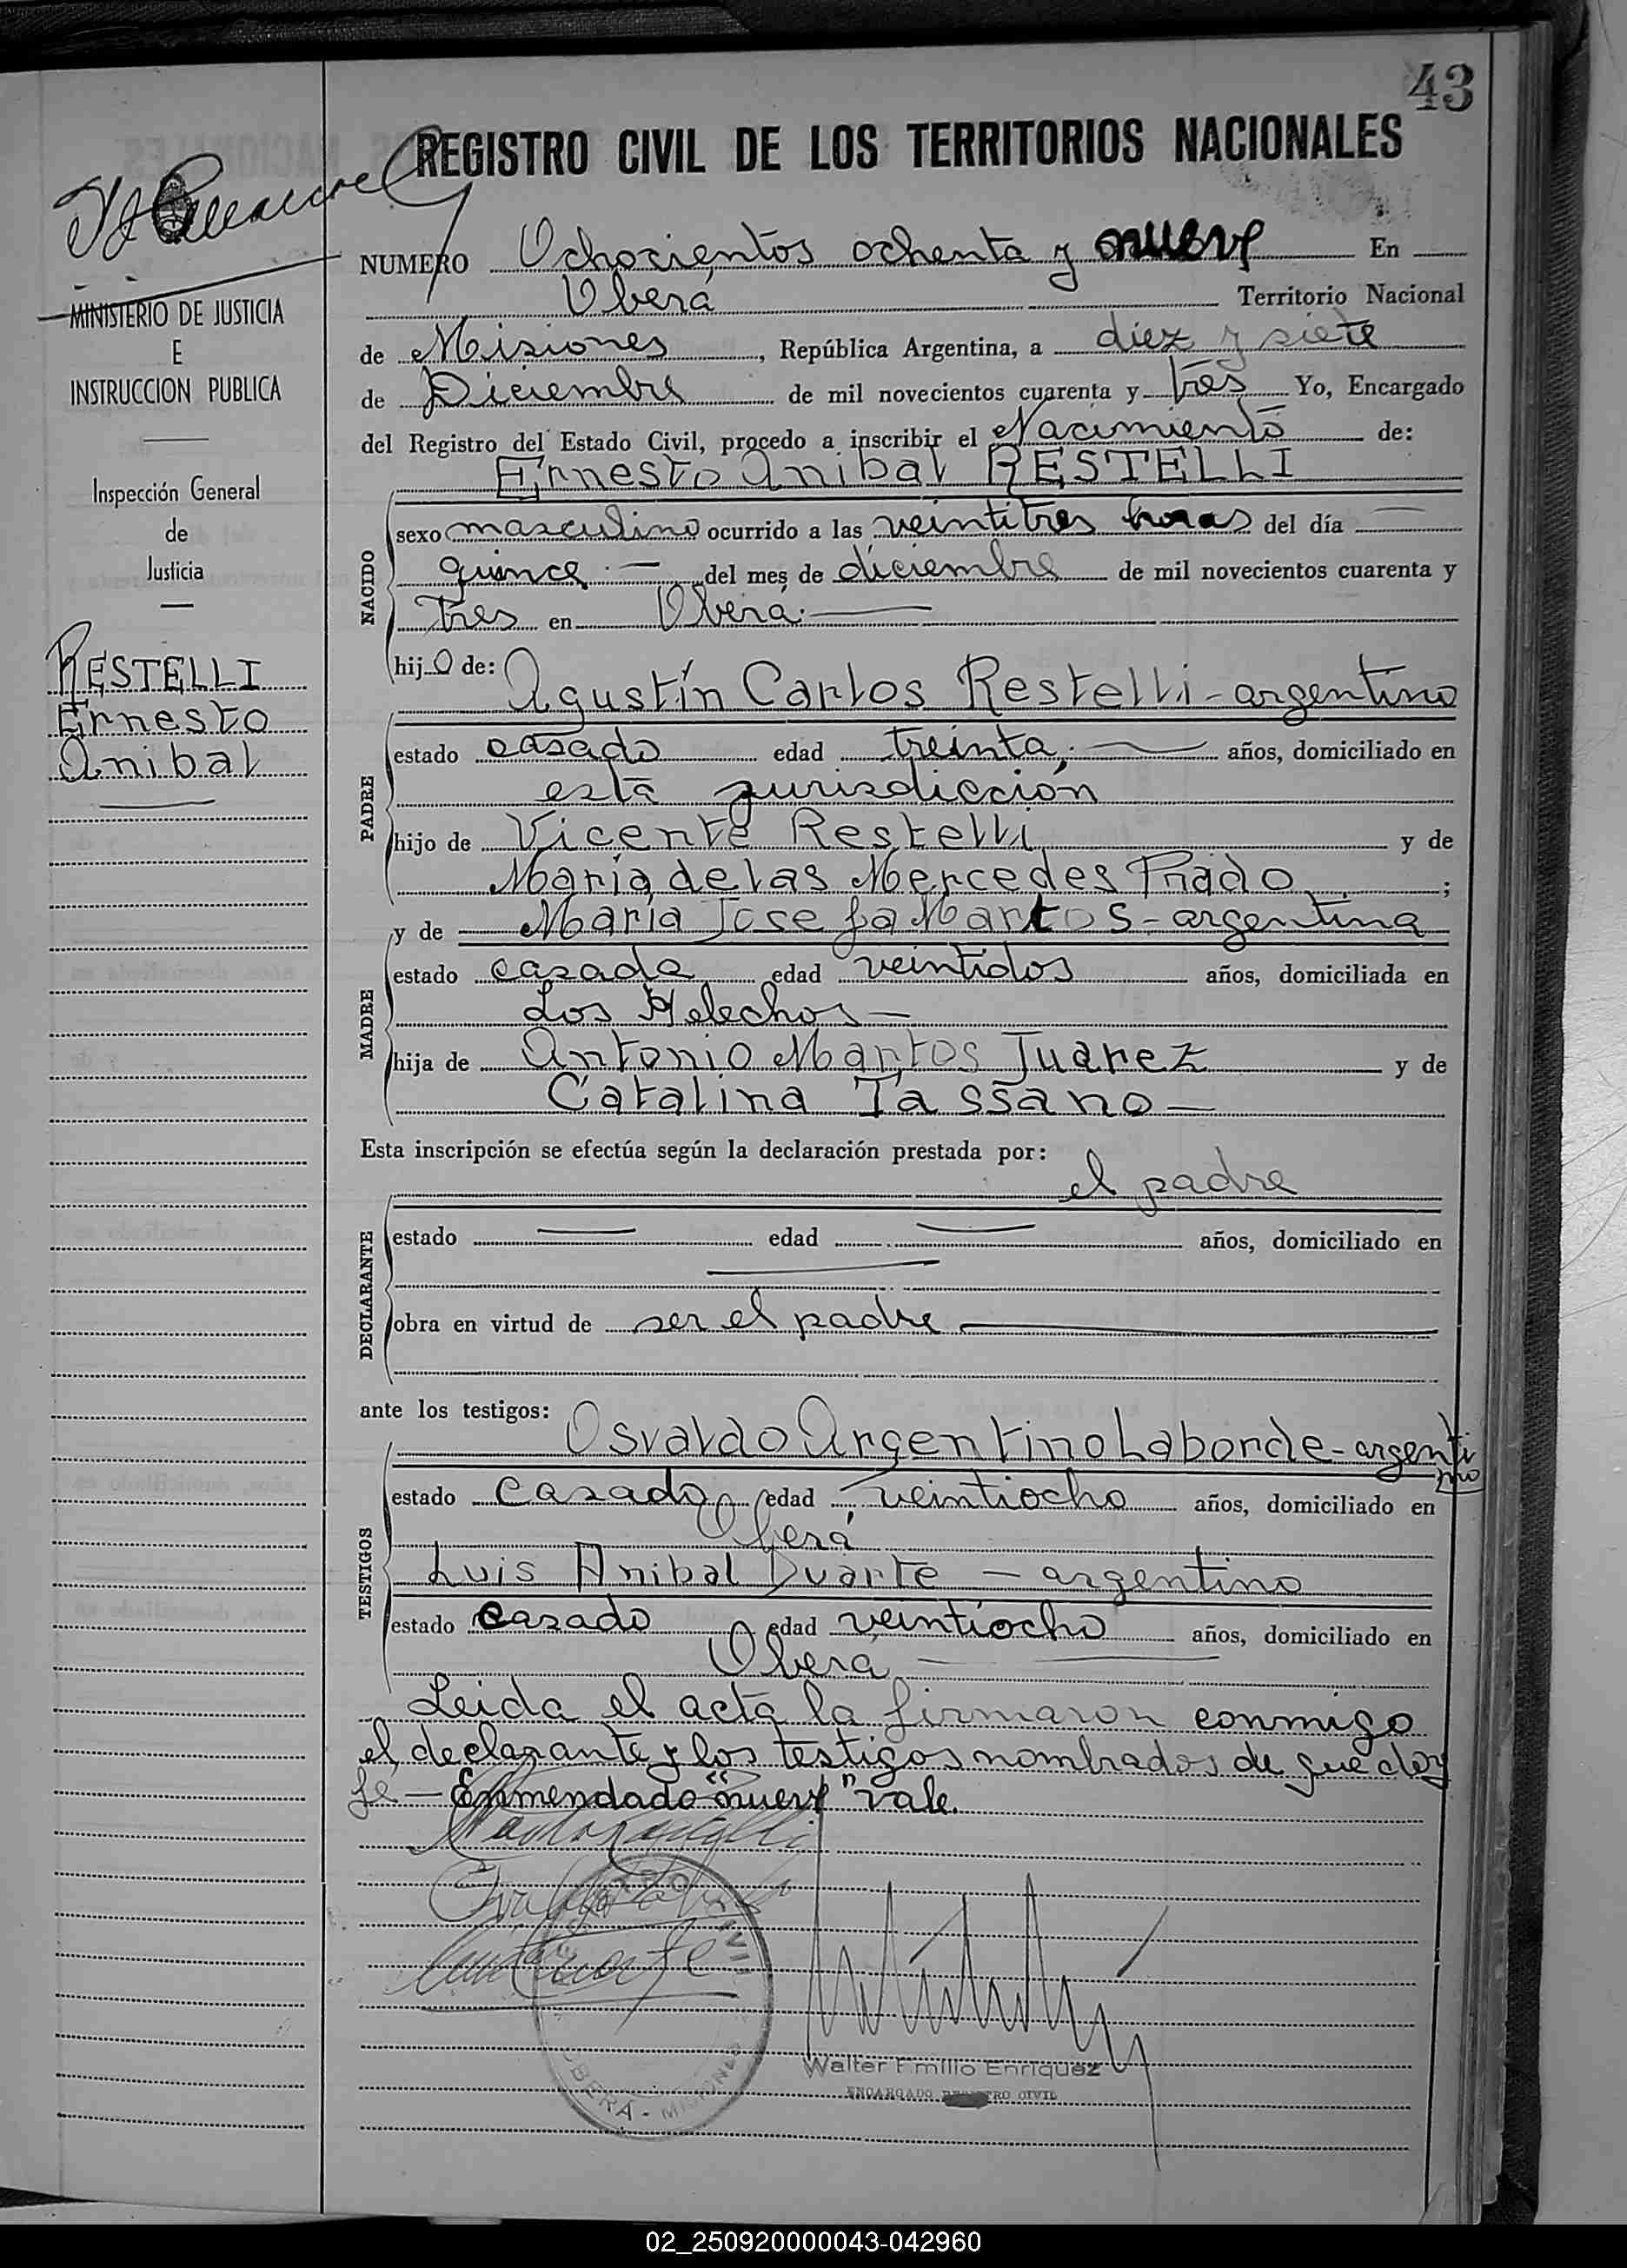 43
REGISTRO CIVIL DE LOS TERRITORIOS NACIONALES
NUMERO Ochocientos ochenta y nueve En
Oberá Territorio Nacional
de Misiones, República Argentina, a diez y siete
de Diciembre de mil novecientos cuarenta y tres Yo, Encargado
del Registro del Estado Civil, procedo a inscribir el Nacimiento de:
Ernesto Anibal RESTELLI
NACIDO
sexo masculino ocurrido a las veintitres horas del día —
quince.— del mes de diciembre de mil novecientos cuarenta y
tres en Oberá.—
hijo de:
Agustín Carlos Restelli - argentino
PADRE
estado casado edad treinta.— años, domiciliado en
esta jurisdicción
hijo de Vicente Restelli y de
María de las Mercedes Prado ;
y de María Josefa Martos - argentina
MADRE
estado casada edad veintidos años, domiciliada en
Los Helechos —
hija de Antonio Martos Juarez y de
Catalina Tassano —
Esta inscripción se efectúa según la declaración prestada por:
el padre
DECLARANTE
estado — edad — años, domiciliado en
—
obra en virtud de ser el padre —
ante los testigos:
Osvaldo Argentino Laborde - argenti
no
TESTIGOS
estado casado edad veintiocho años, domiciliado en
Oberá
Luis Anibal Duarte — argentino
estado casado edad veintiocho años, domiciliado en
Oberá —
Leida el acta la firmaron conmigo
el declarante y los testigos nombrados de que doy
fe — Enmendado "nueve" vale.
Walter Emilio Enriquez
ENCARGADO REGISTRO CIVIL
OBERÁ - MISIONES
MINISTERIO DE JUSTICIA
E
INSTRUCCION PUBLICA
Inspección General
de
Justicia
RESTELLI
Ernesto
Anibal
02_250920000043-042960